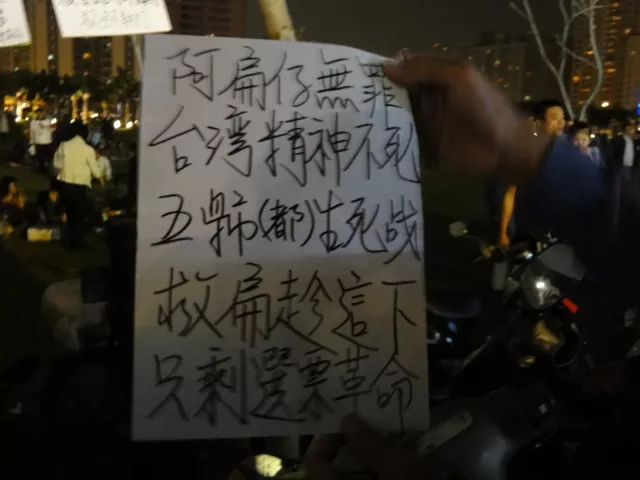 阿扁仔無罪
台湾精神不死
五県市(都)生死战
救扁趁這下
只剩選票革命